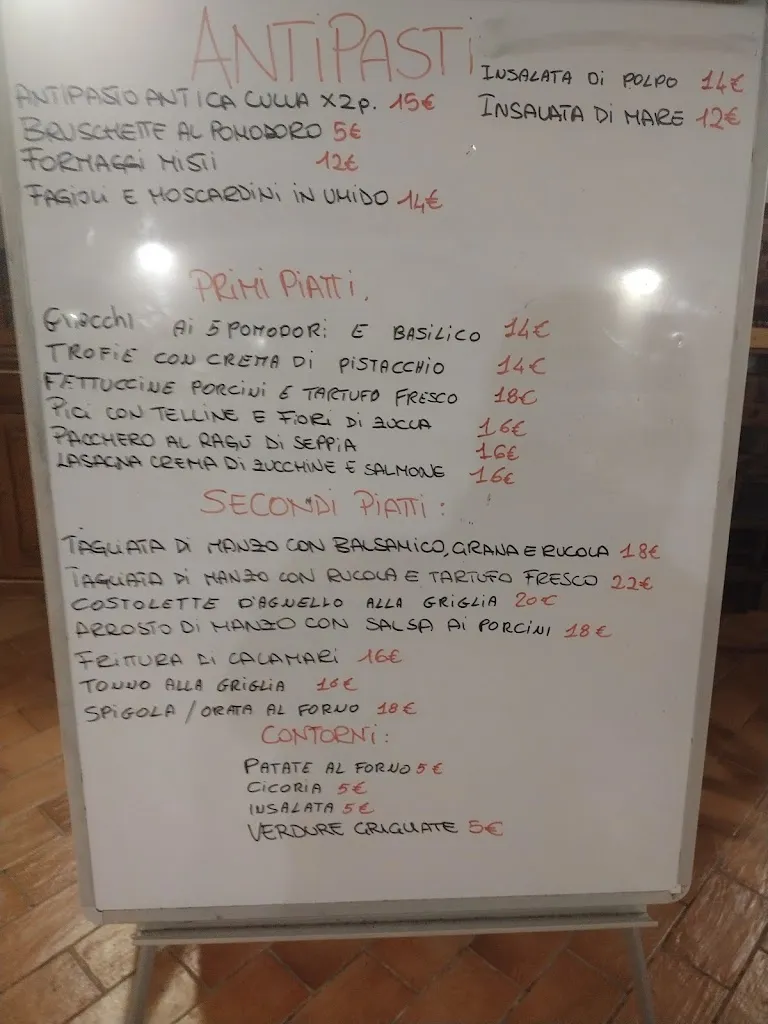 ANTIPASTI
ANTIPASTO ANTICA CULLA X2P. 15€
BRUSCHETTE AL POMODORO 5€
FORMAGGI MISTI 12€
FAGIOLI E MOSCARDINI IN UMIDO 14€
INSALATA DI POLPO 14€
INSALATA DI MARE 12€
PRIMI PIATTI.
GNOCCHI AI 5 POMODORI E BASILICO 14€
TROFIE CON CREMA DI PISTACCHIO 14€
FETTUCCINE PORCINI E TARTUFO FRESCO 18€
PICI CON TELLINE E FIORI DI ZUCCA 16€
PACCHERO AL RAGÙ DI SEPPIA 16€
LASAGNA CREMA DI ZUCCHINE E SALMONE 16€
SECONDI PIATTI:
TAGLIATA DI MANZO CON BALSAMICO, GRANA E RUCOLA 18€
TAGLIATA DI MANZO CON RUCOLA E TARTUFO FRESCO 22€
COSTOLETTE D'AGNELLO ALLA GRIGLIA 20€
ARROSTO DI MANZO CON SALSA AI PORCINI 18€
FRITTURA DI CALAMARI 16€
TONNO ALLA GRIGLIA 16€
SPIGOLA / ORATA AL FORNO 18€
CONTORNI:
PATATE AL FORNO 5€
CICORIA 5€
INSALATA 5€
VERDURE GRIGLIATE 5€